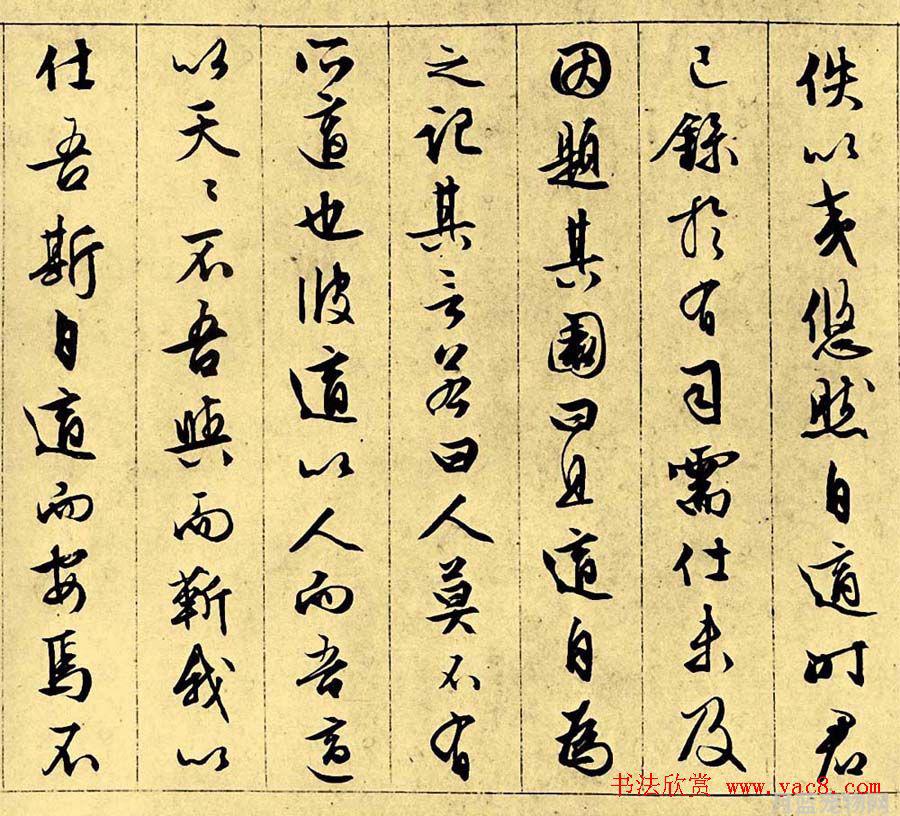 佚以夷悠然自適時君
已錄於有司需仕未及
因題其圃曰且適自為
之記其言若曰人莫不有
所適也彼適以人而吾適
以天〻不吾與而靳我以
仕吾斯日適而安焉不
书法欣赏 www.yac8.com